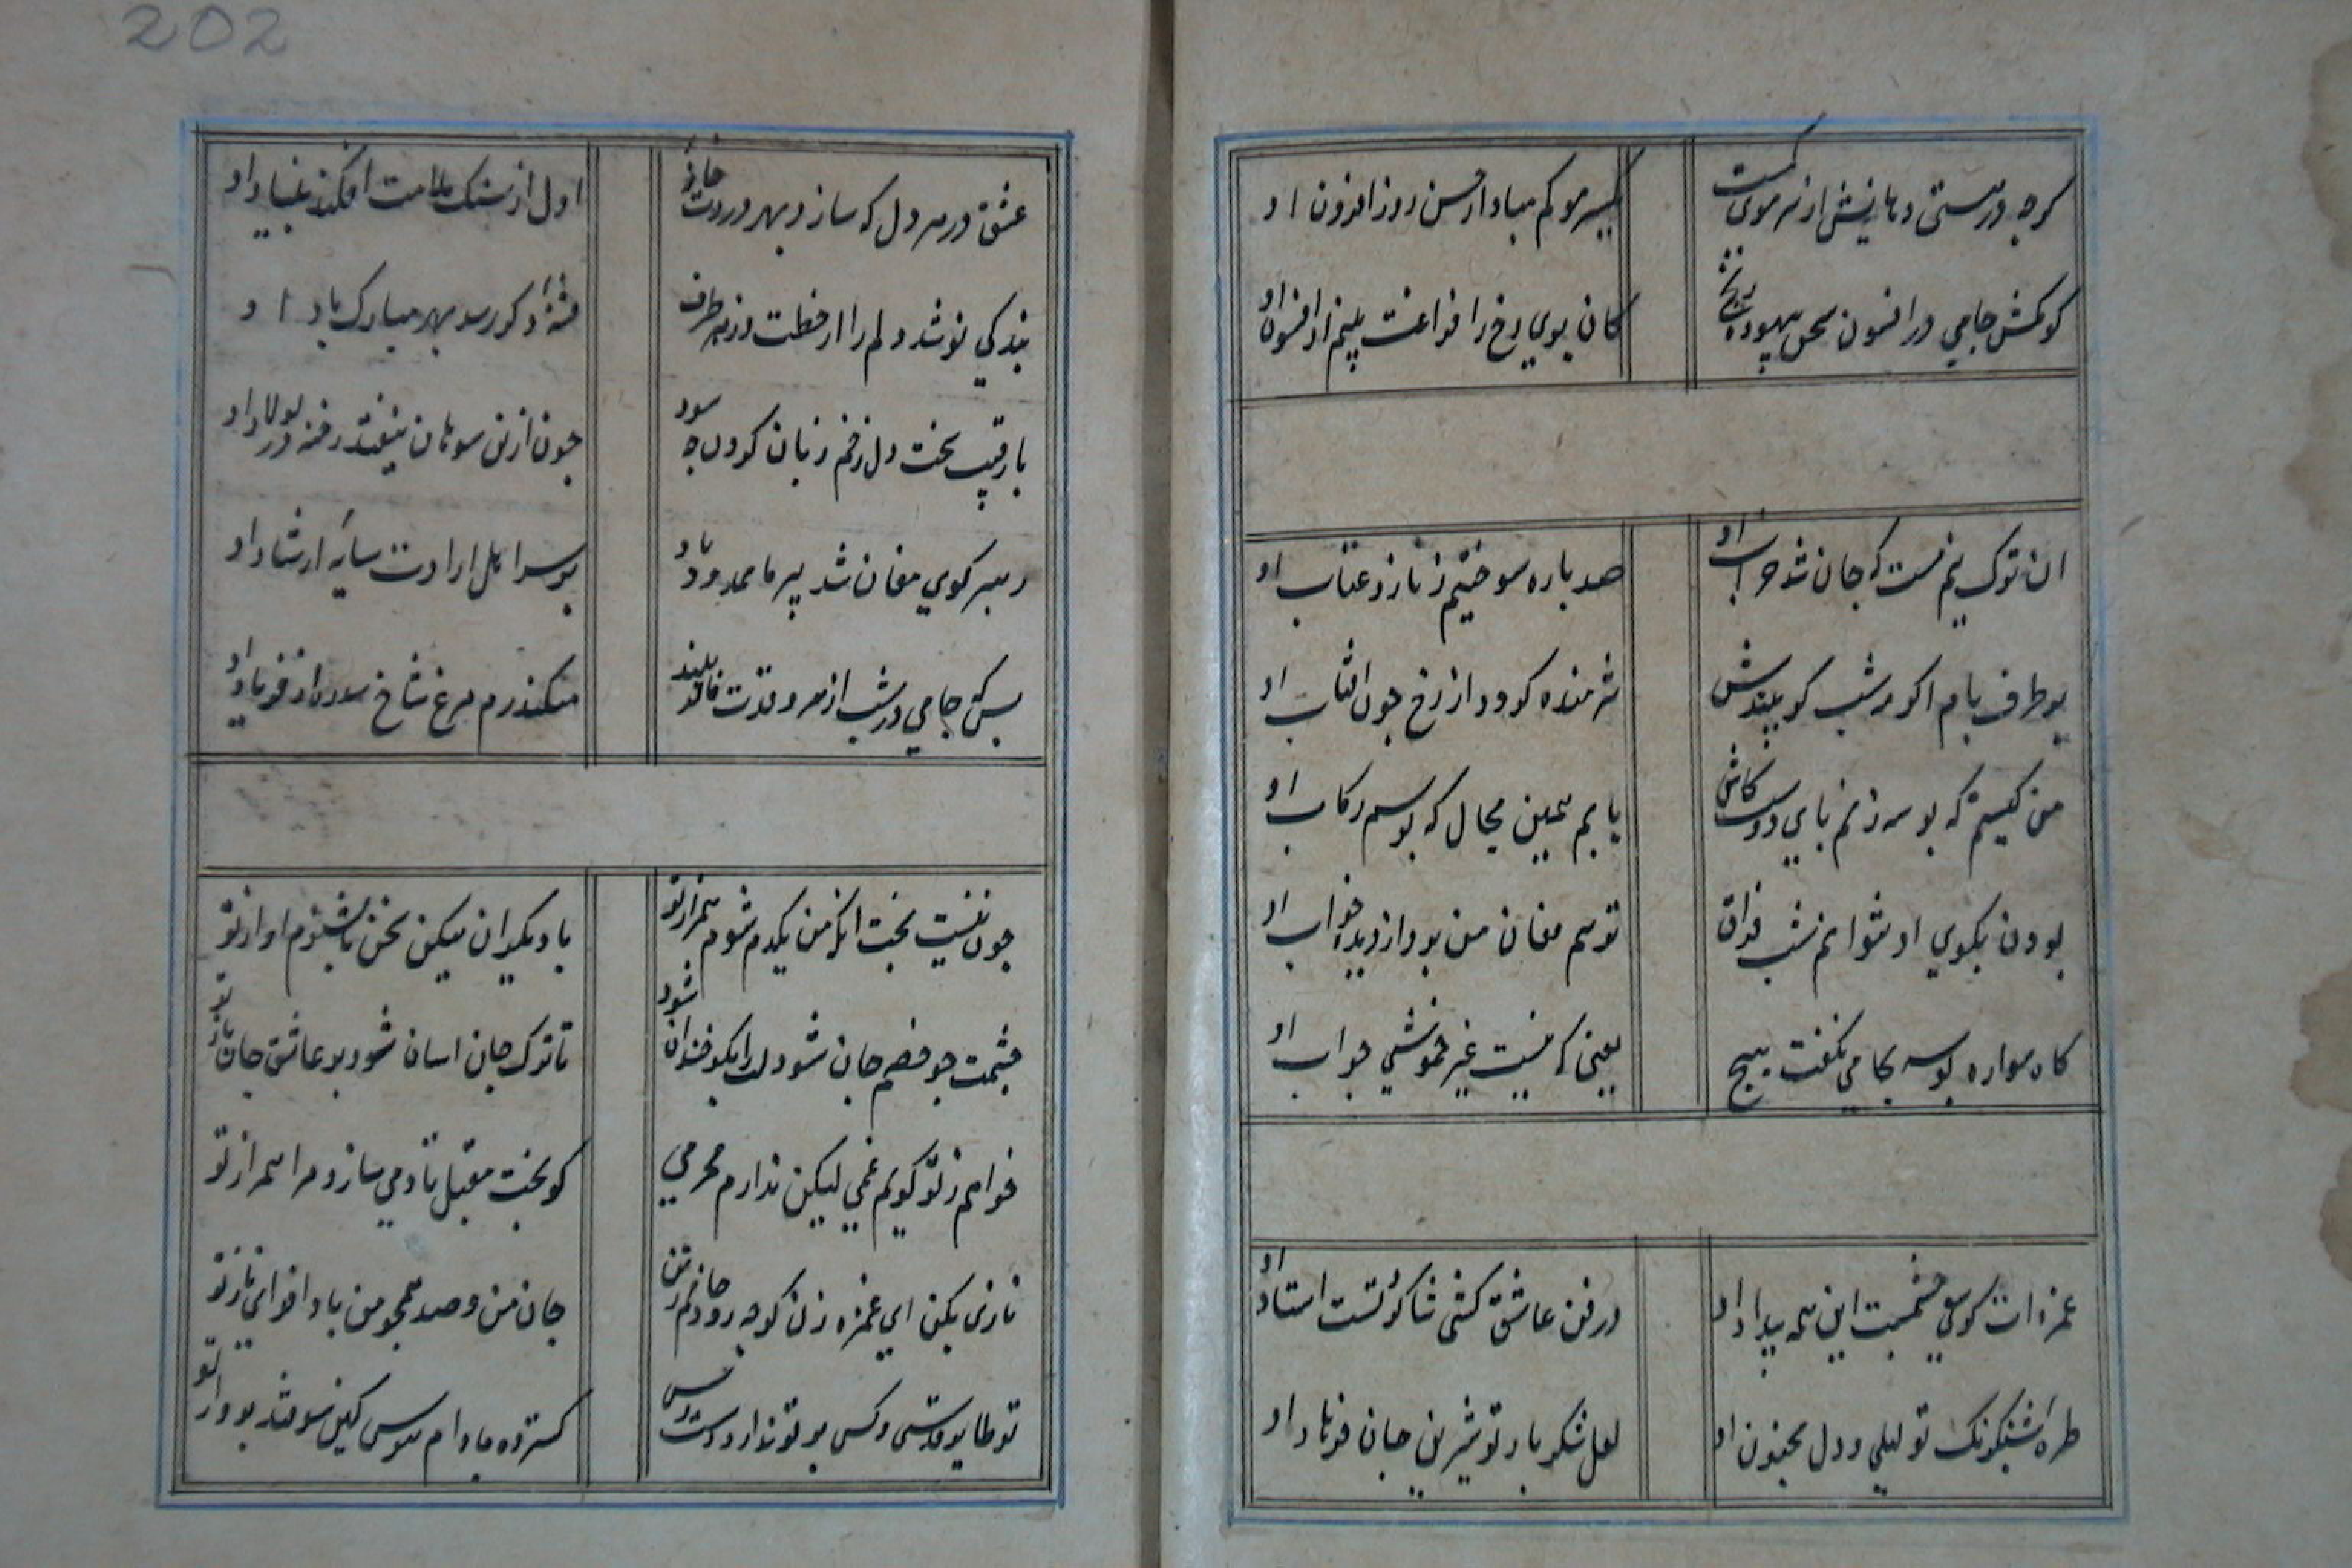 202
کرچه در مستی دهانش از سر موی کمست
یکسر مو کم مباد از حسن روز افزون او
کو مکش جامی در افسون سخن بیهوده رنج
کان پری رخ را فراغت بینم از افسون او
ان ترک نیم مست که جان شد خراب او
صد باره سوختیم ز ناز و عتاب او
بر طرف بام اکر مه شب کو ببیندش
شرمنده کردد از رخ چون افتاب او
من کیستم که بوسه زنم بای دوست کاش
یابم همین مجال که بوسم رکاب او
بودن بکوی او نتوانم شب فراق
ترسم فغان من برد از دیده خواب او
کاه سواره بوسه بجامی نکفت هیچ
یعنی که نیست غیر خموشی جواب او
غمزه ات کوی چشمست این همه بیداد او
در فن عاشق کشی شاکرد تست استاد او
طره شبکونک تو لیلی و دل مجنون او
لعل شکر بار تو شیرین جان فرهاد او
عشق در هر دل که سازد بهر دردت خانه
اول از سنک ملامت افکند بنیاد او
بندکی نو شد دلم را از خطت وز هر طرف
فتنه کو رسد بهر مبارک باد او
با رقیب سخت دل زخم زبان کردن چه سود
چون از نی سوهان نیفتد رخنه در بولاد او
رهبر کوی مغان شد پیر ما ممدود باد
بر سر اهل ارادت سایه ارشاد او
بس که جامی در شب از سرو قدت نالد بلند
میکند رم مرغ شاخ سدره از فریاد او
چون نیست بخت انکه من یکدم شوم همراز تو
با دیکران میکن سخن تا بشنوم اواز تو
چشمت چو خصم جان شود لب را بکو خندان شود
تا ترک جان اسان شود بر عاشق جان باز تو
خواهم ز تو کویم غمی لیکن ندارم محرمی
کو بخت مقبل تا دمی سازد مرا همراز تو
نازی بکن ای غمزه زن کرچه رود جانم ز تن
جان من و صد همچو من بادا فدای ناز تو
تو طایر قدسی و کس بر تو ندارد دست رس
کسترده ما دام هوس کین سو فتد برواز تو